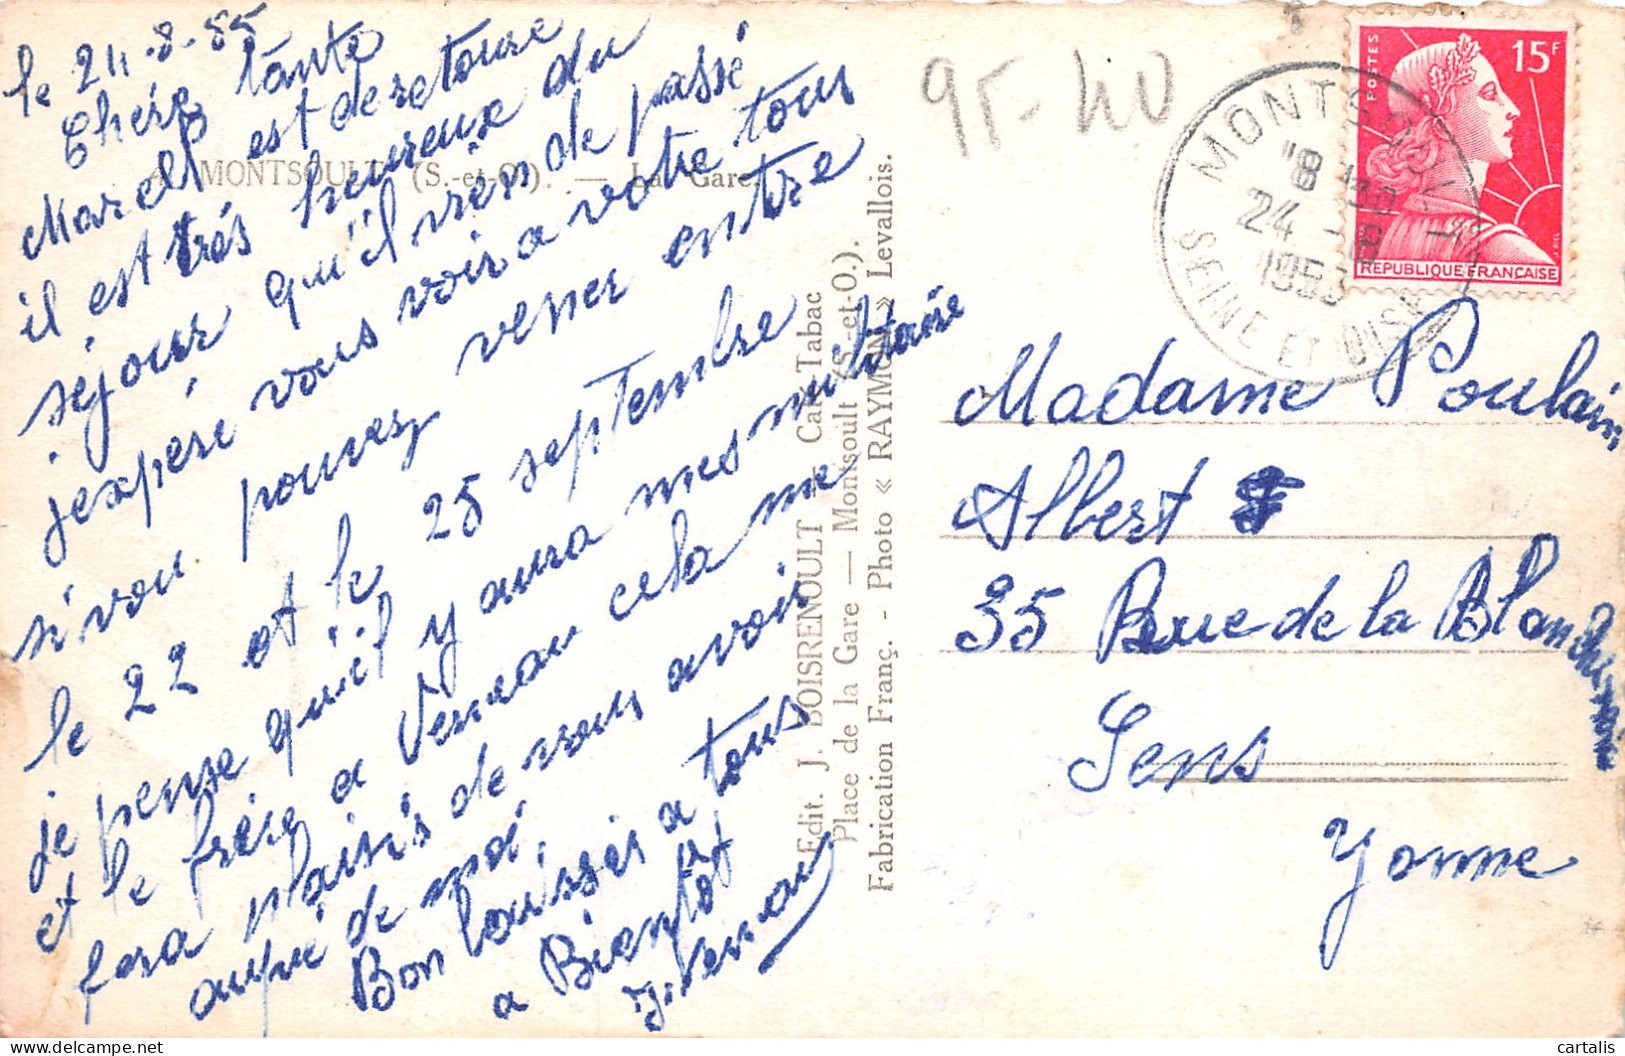 le 24-8-55
Chère tante
Marcel est de retoure
il est trés heureux du
séjour qu'il vien de passé
jexpère vous voir a votre tour
si vou pouvez vener entre
le 22 et le 25 septembre
je pense qu'il y aura mes
et le frère a Vernou cela me
fera plaisis de vous avoir
aupré de moi.
Bon baisser a tous
a Bientôt
J. Vernou
A MONTSOULT (S.-et-O). — La Gare.
Edit. J. BOISRENOULT + Café-Tabac
Place de la Gare — Montsoult (S.-et-O.).
Fabrication Franç. - Photo « RAYMON » Levallois.
95-40
MONTSOULT
18 H30
24 -8
1955
SEINE ET OISE
POSTES
15F
REPUBLIQUE FRANÇAISE
Madame Poulain
Albert
35 Rue de la Blanchisserie
Sens
Yonne
cartalis
www.delcampe.net